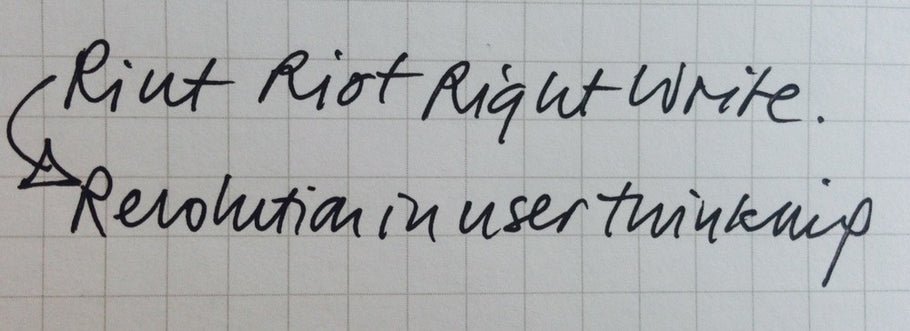 Riut Riot Right Write.
Revolution in user thinking